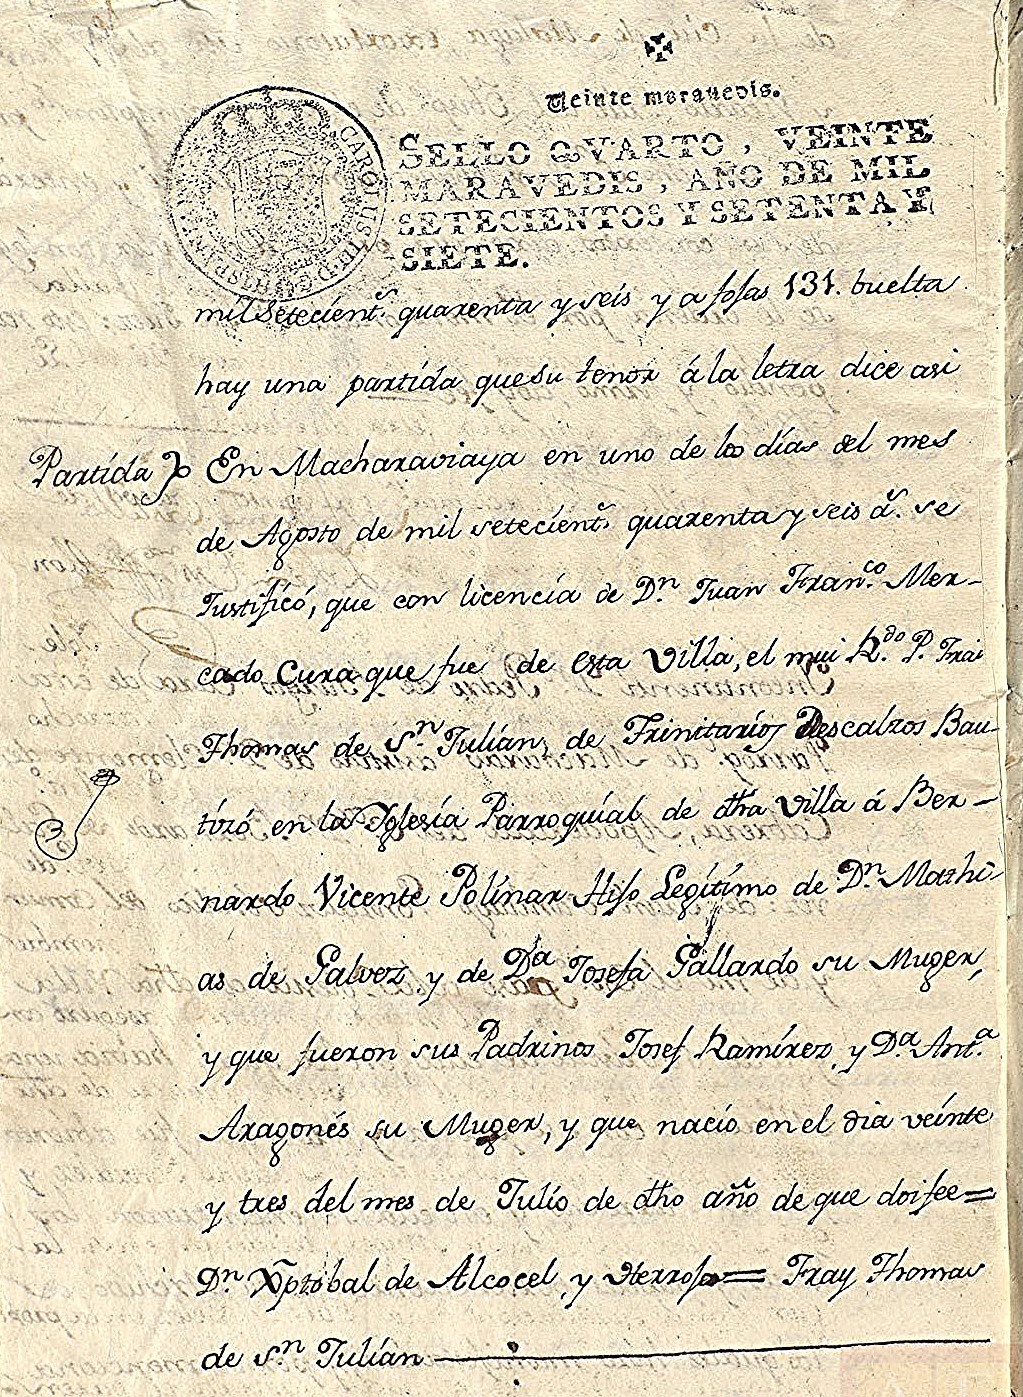 Veinte maravedis.
SELLO QVARTO, VEINTE
MARAVEDIS, AÑO DE MIL
SETECIENTOS Y SETENTA Y
SIETE.
CAROLUS III D G HISPANIAR
mil setecient.s quarenta y seis y a fojas 131. buelta
hay una partida que su tenor á la letra dice asi
Partida En Macharaviaya en uno de los días del mes
de Agosto de mil setecient.s quarenta y seis a.s se
Justificó, que con licencia de D.n Juan Fran.co Mer-
cado Cura que fue de esta Villa, el mui R.do P. Frai
Thomas de S.n Julian, de Trinitarios Descalzos Bau-
tizó en la Yglesia Parroquial de dha villa á Ber-
nardo Vicente Polinar Hijo Legítimo de D.n Mathi-
as de Galvez y de D.a Josefa Gallardo su Muger,
y que fueron sus Padrinos Josef Ramírez y D.a Ant.a
Aragonés su Muger, y que nació en el dia veinte
y tres del mes de Julio de dho año de que doi fee=
D.n Xptobal de Alcocel y Herrofo= Fray Thomas
de S.n Julían